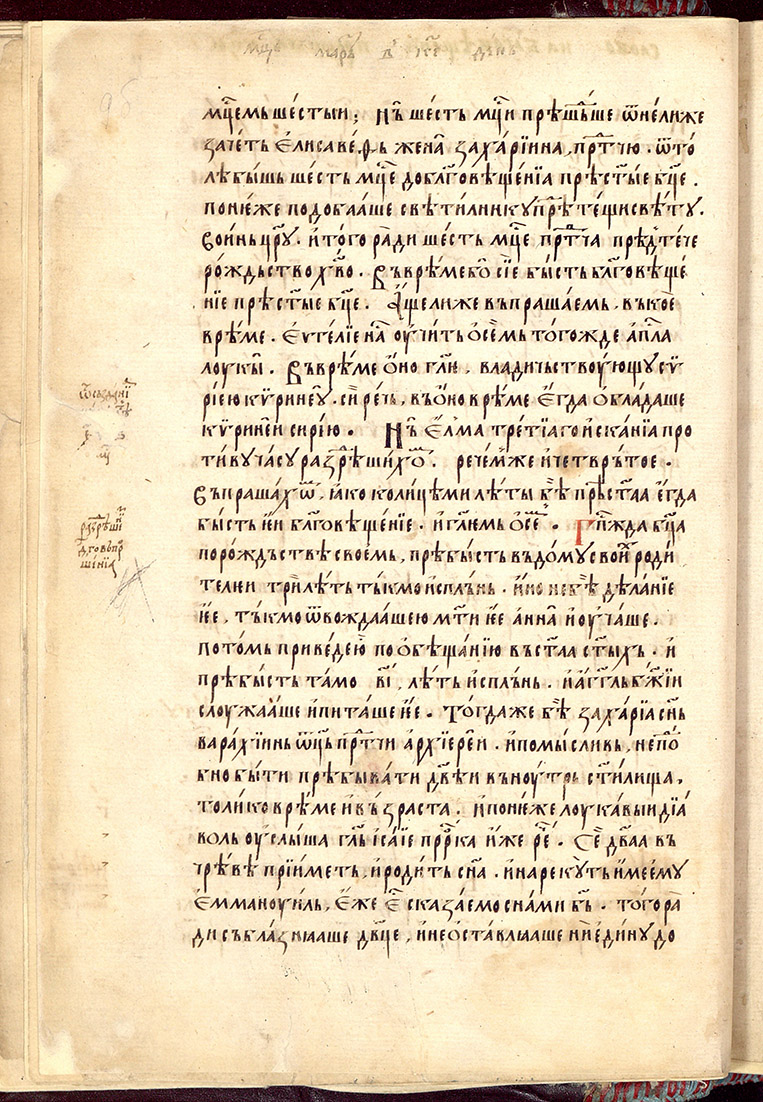 мц҃ъ мар҃ъ в҃ ке҃ день
мц҃емь шестыи; Нъ҆ шесть мц҃и прѣше҃дьше ѿнелиже
зачеть Елисавеѳь жена̀ захарїина, прⷣтчю · ѿто
лѣ бышь шесть мц҃е до блг҃овѣщенїа прѣст҃ые бц҃е ·
понеже подобааше свѣтилнику прⷣѣтещи свѣту ·
воинь цр҃у · и того ради шесть мц҃е прⷣтча прѣдⸯтече
рождьство хв҃о · Въ врѣме бѡ сїе бысть блг҃овѣще
нїе прѣст҃ые бц҃е · Аще ли же въпрашаемь, въ кое
врѣме · Еѵг҃елїе на̀ оучить осемь тогожде ап҃ла
лоукы · Въ врѣме оно гл҃и, владичьствоующу сѵ
рїею кѵринеу · си рѣчь, въ оно врѣме егда обладаше
кѵринеи сирїю · Нъ҆ елма третїаго исканїа про
тиву часу разрѣшихѡⷨ · речем же и четврътое ·
Въпрашахѡⷨ, іако колицѣми лѣты бѣ прѣст҃аа егда
бысть іеи блг҃овѣщенїе · и гл҃юмь ѡ се · Гп҃жда бц҃а
по рождьствѣ своемь, прѣбысть въ дому своиⷯ роди
телюи три лѣть тькмо испльнь · и ино не бѣ дѣланїе
іее, тькмо ѿвождаашею мт҃и іее анна и оучаше ·
потомь приведею по обѣщанїю въ ст҃аа ст҃ыхь · и
прѣбысть тамо в҃і, лѣть испльнь · и агг҃ль бж҃їи
слоужааше и питаше іее · Тогда же бѣ захарїа сн҃ь
варахїинь ѡц҃ь прⷣтчи архїереи · и помысливь, не поⷣ҇о
бно быти прѣбывати дв҃ѣи вьноутрь ст҃илища,
толико врѣме и възраста · и понеже лоукавыи дїа
воль оуслыша гл҃ь ісаїе прⷪ҇рка иже реⷱ҇ · Се дв҃аа въ
чрѣвѣ прїиметь, и родить сн҃а · и нарекуть име ему
Еммануиль, еже еⷭ҇ сказаемо с нами бь҃ · того ра
ди съблазнıааше дв҃це, и не оставлıааше ни единудо